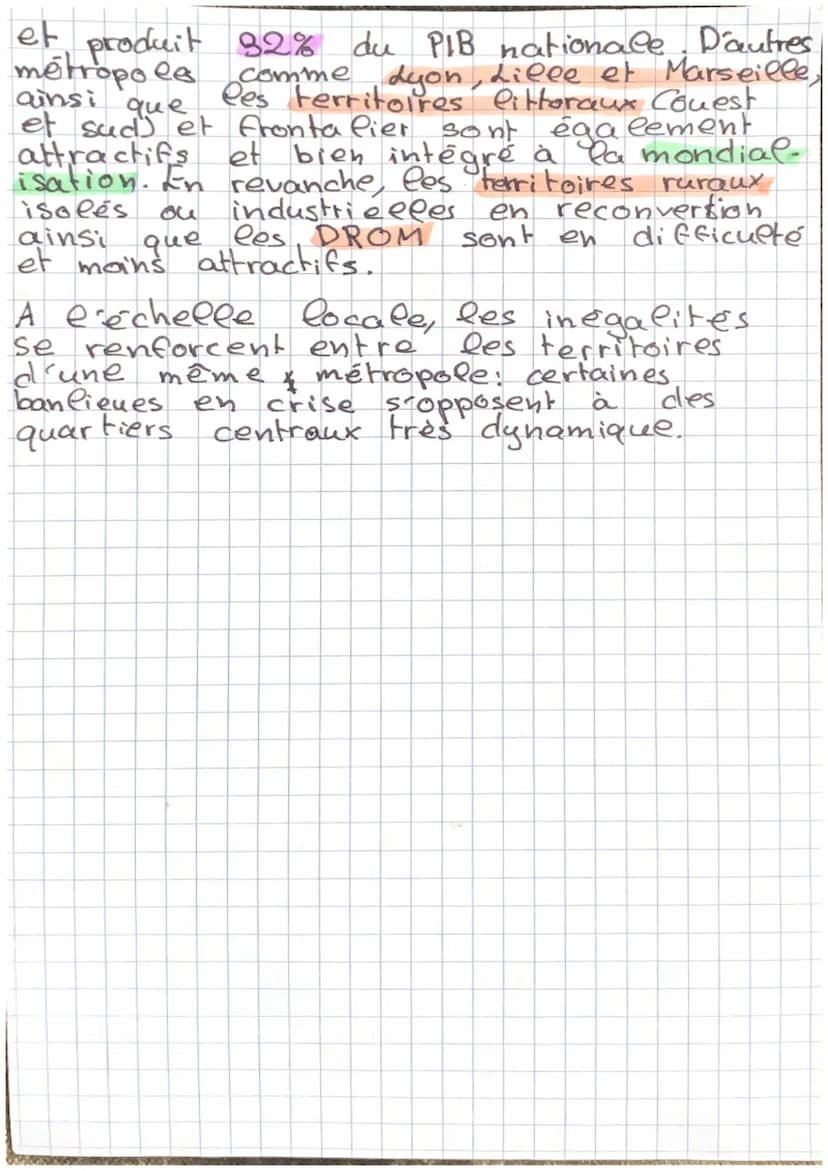 et produit 92% du PIB nationale. D'autres
métropoles comme Lyon, Lille et Marseille,
ainsi que les territoires littoraux (ouest
et sud) et frontalier sont également
attractifs et bien intégré à la mondial-
isation. En revanche, les territoires ruraux
isolés ou industrielles en reconvertion
ainsi que les DROM sont en difficulté
et moins attractifs.
A l'échelle locale, les inégalités
se renforcent entre les territoires
d'une même métropole: certaines
banlieues en crise s'opposent à des
quartiers centraux très dynamique.